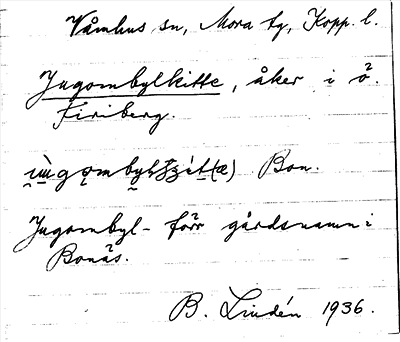 Våmhus sn, Mora tg, Kopp. l.
Jugombylkitte, åker i ö.
Firiberg.
Bon.
Jugombyl- förr gårdsnamn i
Bonäs.
B. Lindén 1936.